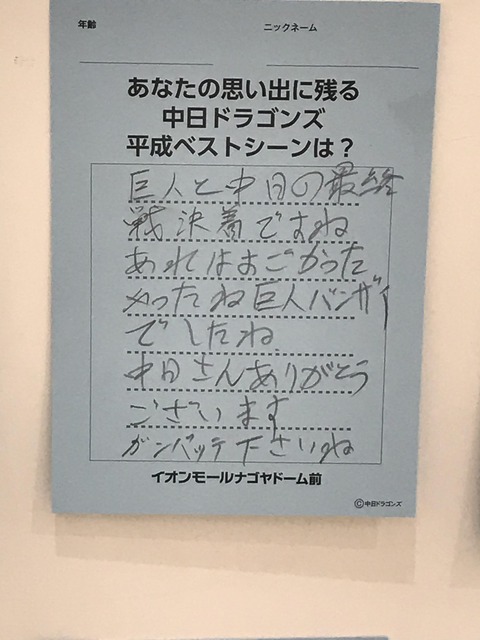 年齢 ニックネーム
あなたの思い出に残る
中日ドラゴンズ
平成ベストシーンは？
巨人と中日の最終
戦決着ですね
あれはすごかった
やったね巨人バンザイ
でしたね
中日さんありがとう
ございます
ガンバッテ下さいね
イオンモールナゴヤドーム前
©中日ドラゴンズ